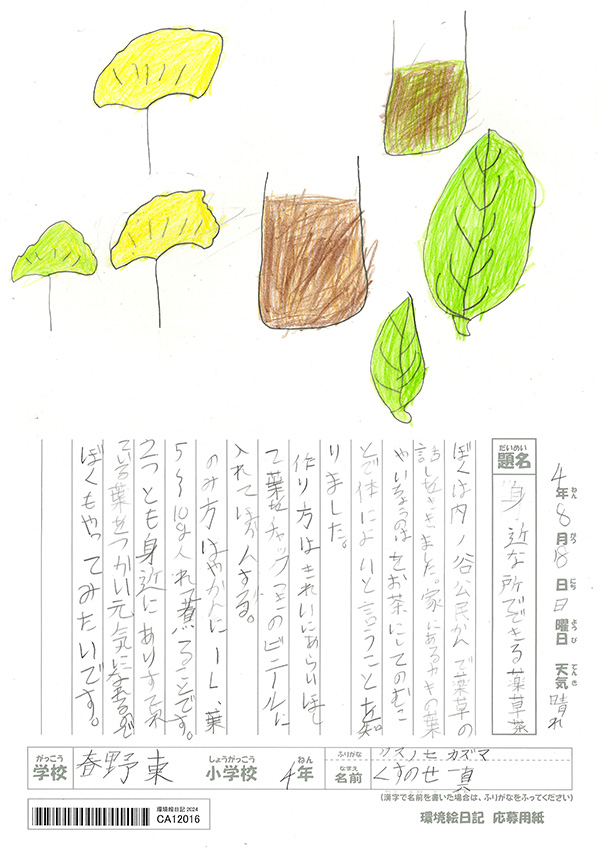 4年8月18日日曜日 天気晴れ
ねん がつ にち ようび てんき
だいめい
題名 身近な所でできる薬草茶
ぼくは内ノ谷公民かんで薬草の
話しをききました。家にあるカキの葉
やいちょうの はをお茶にしてのむこ
とで体によいと言うことを知
りました。
作り方はきれいにあらいほし
て葉をチャックつきのビニールに
入れてほぞんする。
のみ方はやかんに1L、葉
5〜10g入れて煮ることです。
2つとも身近にありすて
ている葉をつかい元気になれるので
ぼくもやってみたいです。
がっこう
学校 春野東 しょうがっこう
小学校 4年 ねん
ふりがな クスノセ カズマ
なまえ
名前 くすのせ 一真
(漢字で名前を書いた場合は、ふりがなをふってください)
環境絵日記 2024
CA12016
環境絵日記 応募用紙